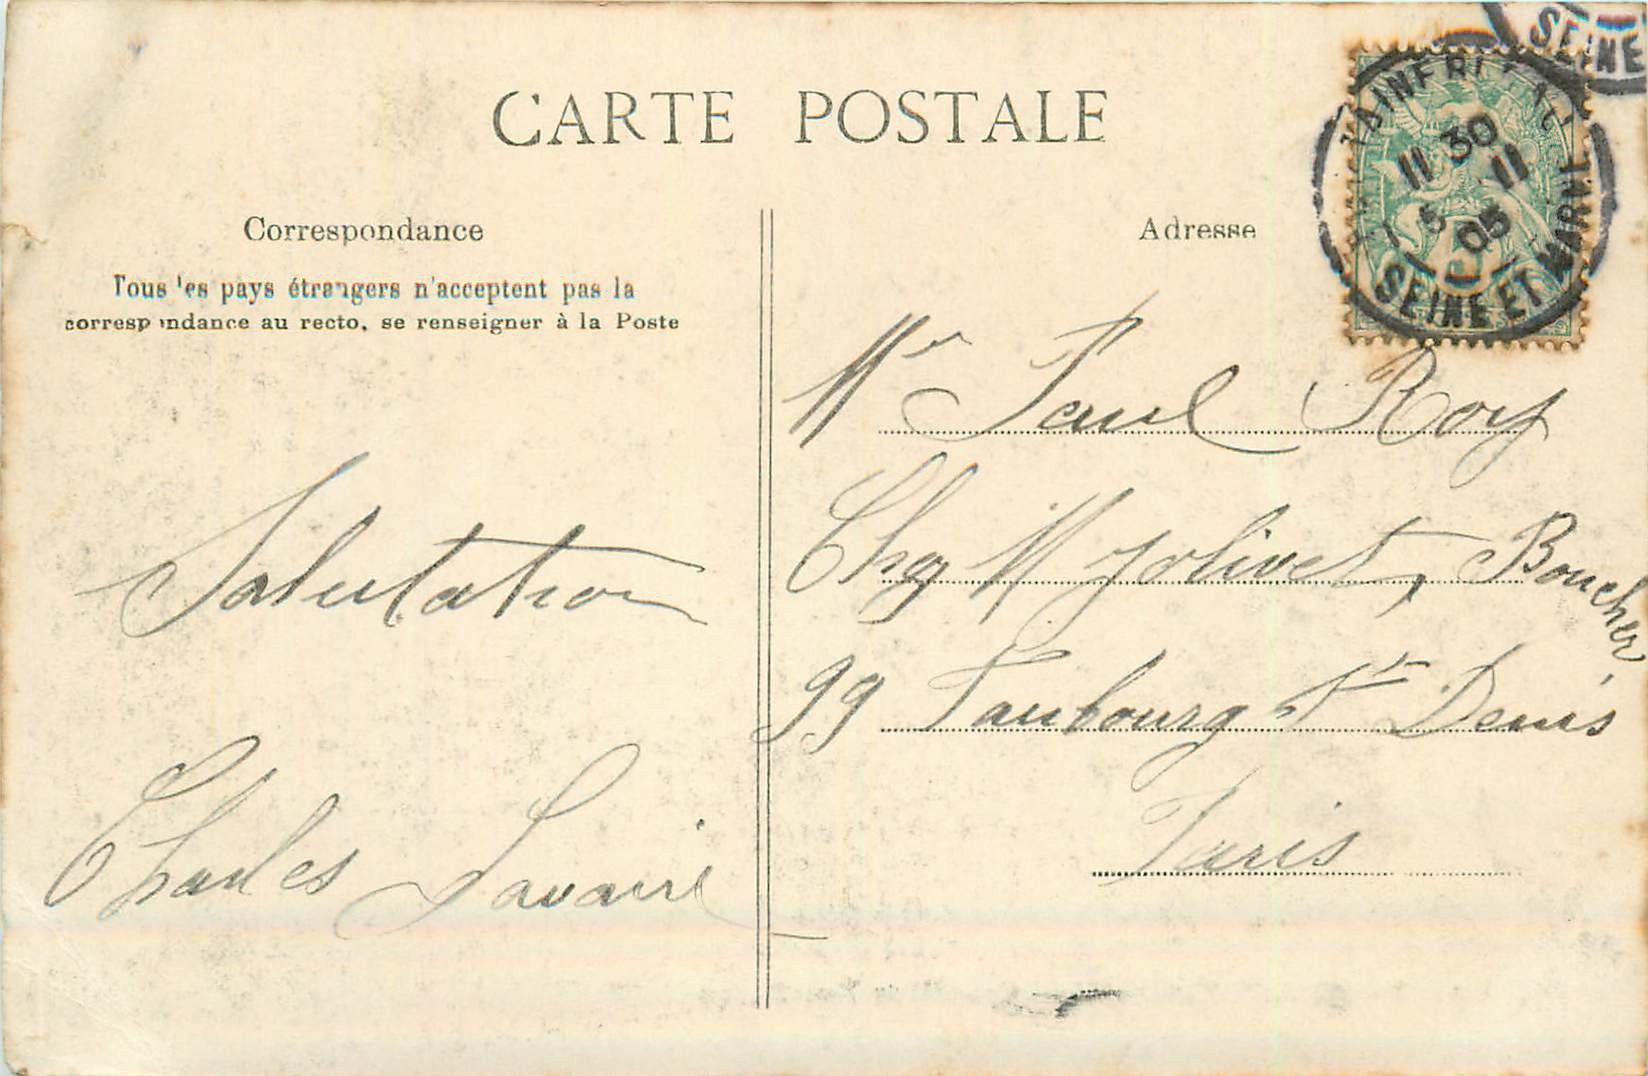 CARTE POSTALE
Correspondance
Tous les pays étrangers n'acceptent pas la
correspondance au recto, se renseigner à la Poste
Salutation
Charles Savaire
Adresse
Mr Paul Roy
Chez M Jolivet, Boucher
99 Faubourg St Denis
Paris
11 30
5 11
05
SEINE ET MARNE
SEINE